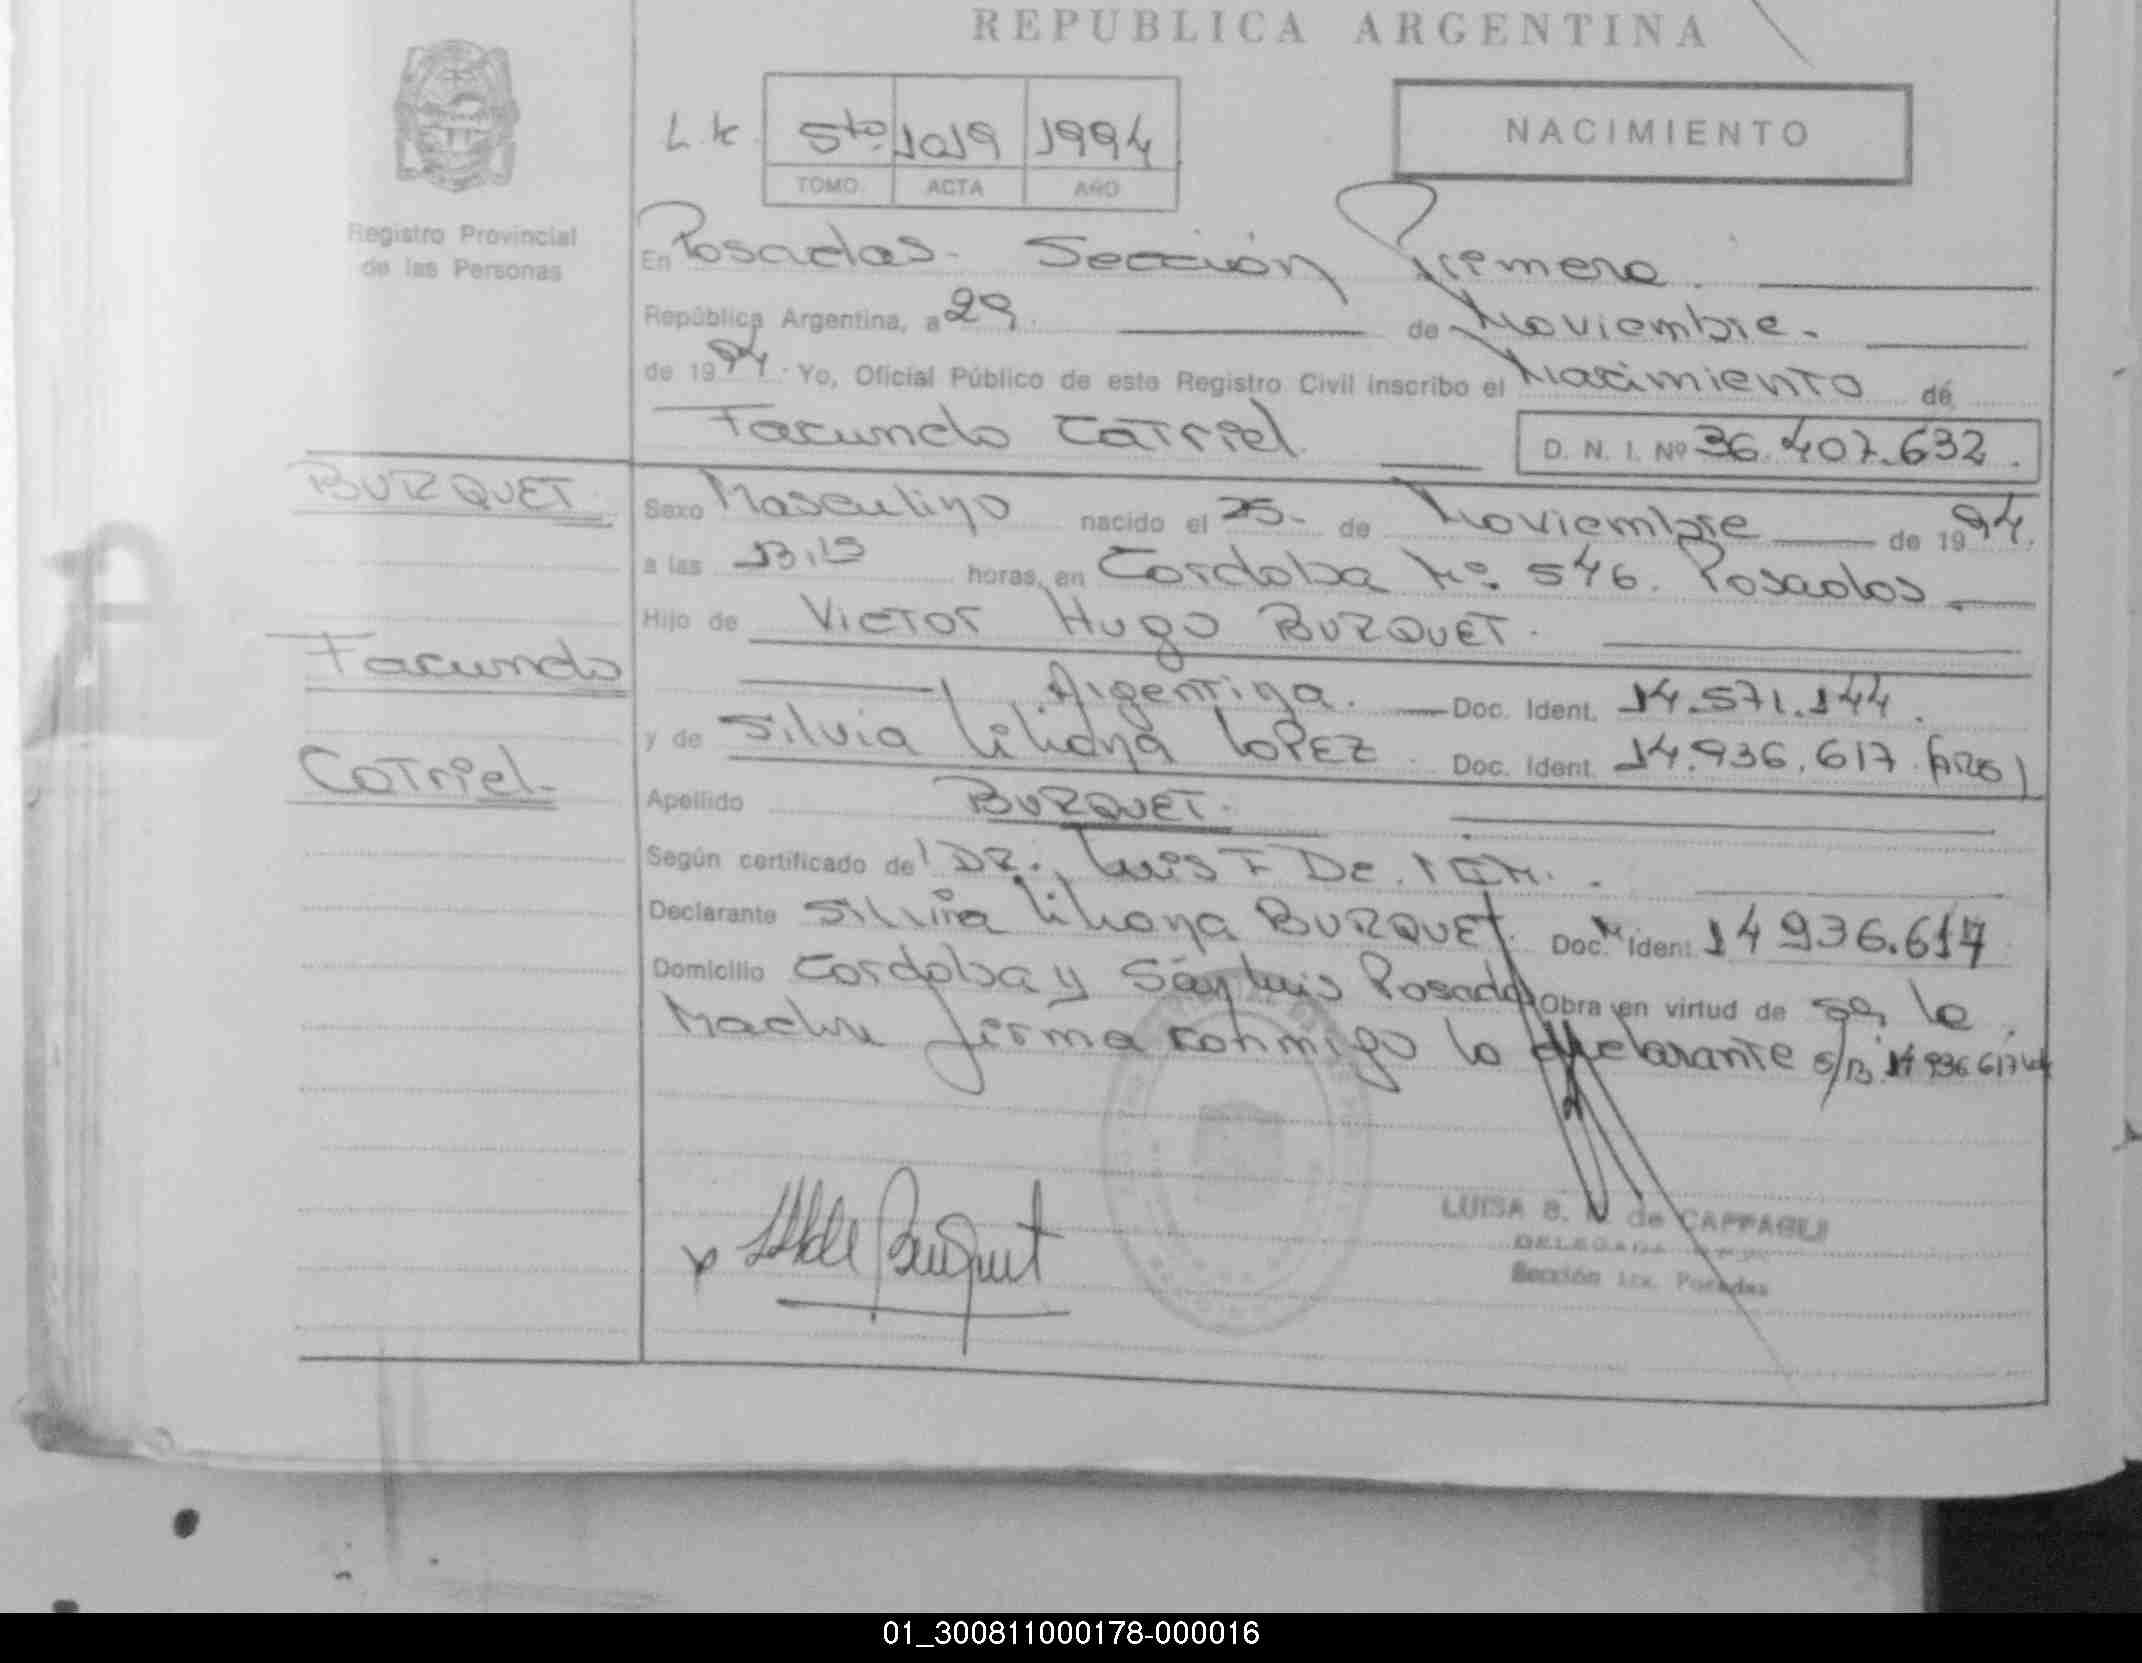 REPUBLICA ARGENTINA
5to 1019 1994
TOMO ACTA AÑO
NACIMIENTO
Registro Provincial
de las Personas
En Posadas - Sección Primera
República Argentina, a 29 de Noviembre.
de 1994. Yo, Oficial Público de este Registro Civil inscribo el Nacimiento de
Facundo Catriel
D. N. I. Nº 36.407.632.
BURQUET
Sexo Masculino nacido el 25 - de Noviembre de 1994.
a las 13,15 horas, en Cordoba Nº 546. Posadas
Hijo de Victor Hugo BURQUET.
Facundo
Argentina. Doc. Ident. 14.571.144.
y de Silvia Liliana LOPEZ Doc. Ident. 14.936.617
Catriel
Apellido BURQUET.
Según certificado de DR. Luis F De
Declarante Silvia Liliana BURQUET. Doc. Ident. 14 936.617
Domicilio Cordoba y San Luis Posadas Obra en virtud de ser la
Madre firma conmigo la declarante 14 936 617
LUISA B. de CAFFAGLI
DELEGADA
Sección 1ra. Posadas
01_300811000178-000016